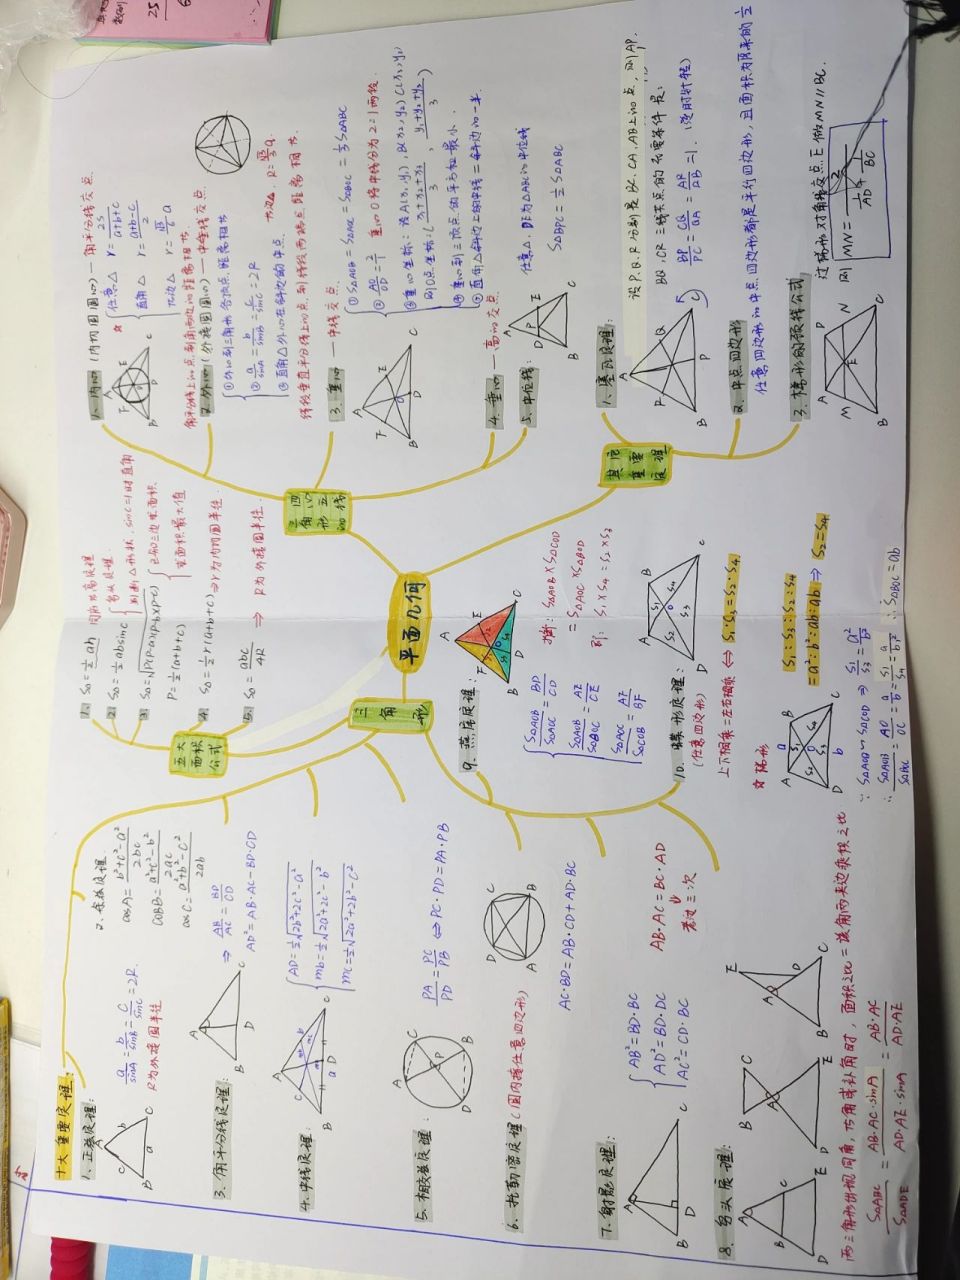 平面几何
三角形
十大重要定理:
1. 正弦定理:
a/sinA = b/sinB = c/sinC = 2R.
R为外接圆半径
2. 余弦定理.
cosA = (b²+c²-a²)/2bc
cosB = (a²+c²-b²)/2ac
cosC = (a²+b²-c²)/2ab
3. 角平分线定理:
⇒ AB/AC = BD/CD
AD² = AB·AC-BD·CD
4. 中线定理:
AD = ½√2b²+2c²-a²
mb = ½√2a²+2c²-b²
mc = ½√2a²+2b²-c²
5. 相交弦定理:
PA/PD = PC/PB ⇔ PC·PD = PA·PB
6. 托勒密定理 (圆内接任意四边形)
AC·BD = AB·CD+AD·BC
7. 射影定理:
AB² = BD·BC
AD² = BD·DC
AC² = CD·BC
AB·AC = BC·AD
8. 鸟头定理:
两三角形出现同角, 等角或补角时, 面积之比 = 该角两夹边乘积之比
S△ABC/S△ADE = AB·AC·sinA/AD·AE·sinA = AB·AC/AD·AE
9. 燕尾定理:
S△AOB/S△AOC = BD/CD
S△AOB/S△BOC = AE/CE
S△AOC/S△COB = AF/BF
推断: S△AOB×S△COD
= S△AOC×S△BOD
即: S₁×S₄ = S₂×S₃
10. 蝴蝶定理:
(任意四边形)
上下相乘 = 左右相乘 ⇔ S₁·S₃ = S₂·S₄
☆ 梯形
S₁:S₃:S₂:S₄
= a²:b²:ab:ab ⇒ S₂=S₄
∵ S△AOD∽S△COD ⇒ S₁/S₃ = a²/b²
∴ S△AOB/S△BOC = AO/OC = a/b = S₁/S₄ = a²/b² ∴ S△BOC = ab
五大面积公式
1. S△ = ½ah 同底等高定理
2. S△ = ½absinC
3. S△ = √P(P-a)(P-b)(P-c)
已知三边求面积.
求面积最大值
P = ½(a+b+c)
4. S△ = ½r(a+b+c) ⇒ r为内切圆半径
5. S△ = abc/4R ⇒ R为外接圆半径.
三角形四心五线
1. 内心 (内切圆圆心) — 角平分线交点.
☆ 任意△ r = 2S/(a+b+c)
直角△ r = (a+b-c)/2
等边△ r = √3/6 a
角平分线上的点到角两边的距离相等.
2. 外心 (外接圆圆心) — 中垂线交点.
①外心到三角形各顶点距离相等
② a/sinA = b/sinB = c/sinC = 2R 等边△, R = √3/3 a.
③直角△外心在斜边的中点.
线段垂直平分线上的点, 到线段两端点距离相等.
3. 重心 — 中线交点.
① S△AOB = S△AOC = S△BOC = ⅓S△ABC
② AO/OD = 2/1 重心O将中线分为2:1两段.
③重心坐标: 设A(x₁,y₁), B(x₂,y₂) C(x₃,y₃)
则O点坐标: ( (x₁+x₂+x₃)/3 , (y₁+y₂+y₃)/3 )
④重心到三顶点的平方和最小.
⑤直角△斜边上的中线 = 斜边的一半.
4. 垂心 — 高的交点.
5. 中位线:
任意△, DE为△ABC的中位线
S△BPC = ½S△ABC
其它重要定理
1. 塞瓦定理:
设P.Q.R分别是BC.CA.AB上的点, 则AP.
BQ.CR三线共点的充要条件是:
BP/PC = CQ/QA = AR/RB = 1. (逆时针转)
2. 中点四边形
任意四边形的中点四边形都是平行四边形, 且面积为原来的½
3. 梯形的颈线公式
过梯形对角线交点E做MN∥BC.
则 MN = 2/(1/AD + 1/BC)